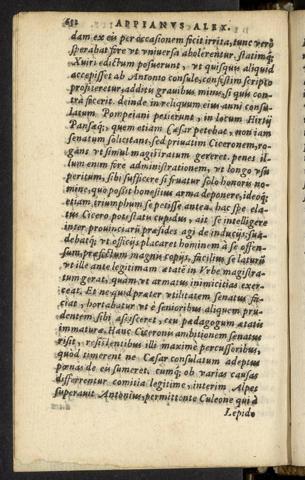 652 APPIANVS ALEX.
dam ex eis per occasionem ficit irrita, tunc verò
sperabat fore vt vniuersa abolerentur. statimq́;
Xuiri edictum posuerunt, vt quisquis aliquid
accepisset ab Antonio consule, confestim scripto
profiteretur, additis grauibus minis, si quis con-
trà fecerit. deinde in reliquum eius anni consu-
latum Pompeiani petierunt, in locum Hirtij
Pansæq́;, quem etiam Cæsar petebat, non iam
senatum solicitans, sed priuatim Ciceronem, ro-
gans vt simul magistratum gereret. penes il-
lum enim fore administrationem, vt longo vsu
peritum, sibi sufficere si fruatur solo honoris no-
mine, quò possit honestius arma deponere, ideoq́;
etiam triumphum se petisse antea. hac spe ela-
tus Cicero potestatis cupidus, ait se intelligere
inter prouinciarũ præsides agi de inducijs: sua-
debatq́; vt officijs placaret hominem à se offen-
sum, præfectum magnis copijs, facilius se laturũ
vt ille ante legitimam ætatẽ in Vrbe magistra-
tum gerat, quàm vt armatus inimicitias exer-
ceat. Et ne quid præter vtilitatem senatus fa-
ciat, hortabatur vt è senioribus aliquem pru-
dentem sibi ascisceret, ceu pædagogum ætatis
immaturæ. Hanc Ciceronis ambitionem senatus
risit, resistentibus illi maximè percussoribus,
quòd timerent ne Cæsar consulatum adeptus
pœnas de eis sumeret. cumq́; ob varias causas
differrentur comitia legitime, interim Alpes
superauit Antonius, permittente Culeone qui à
Lepido